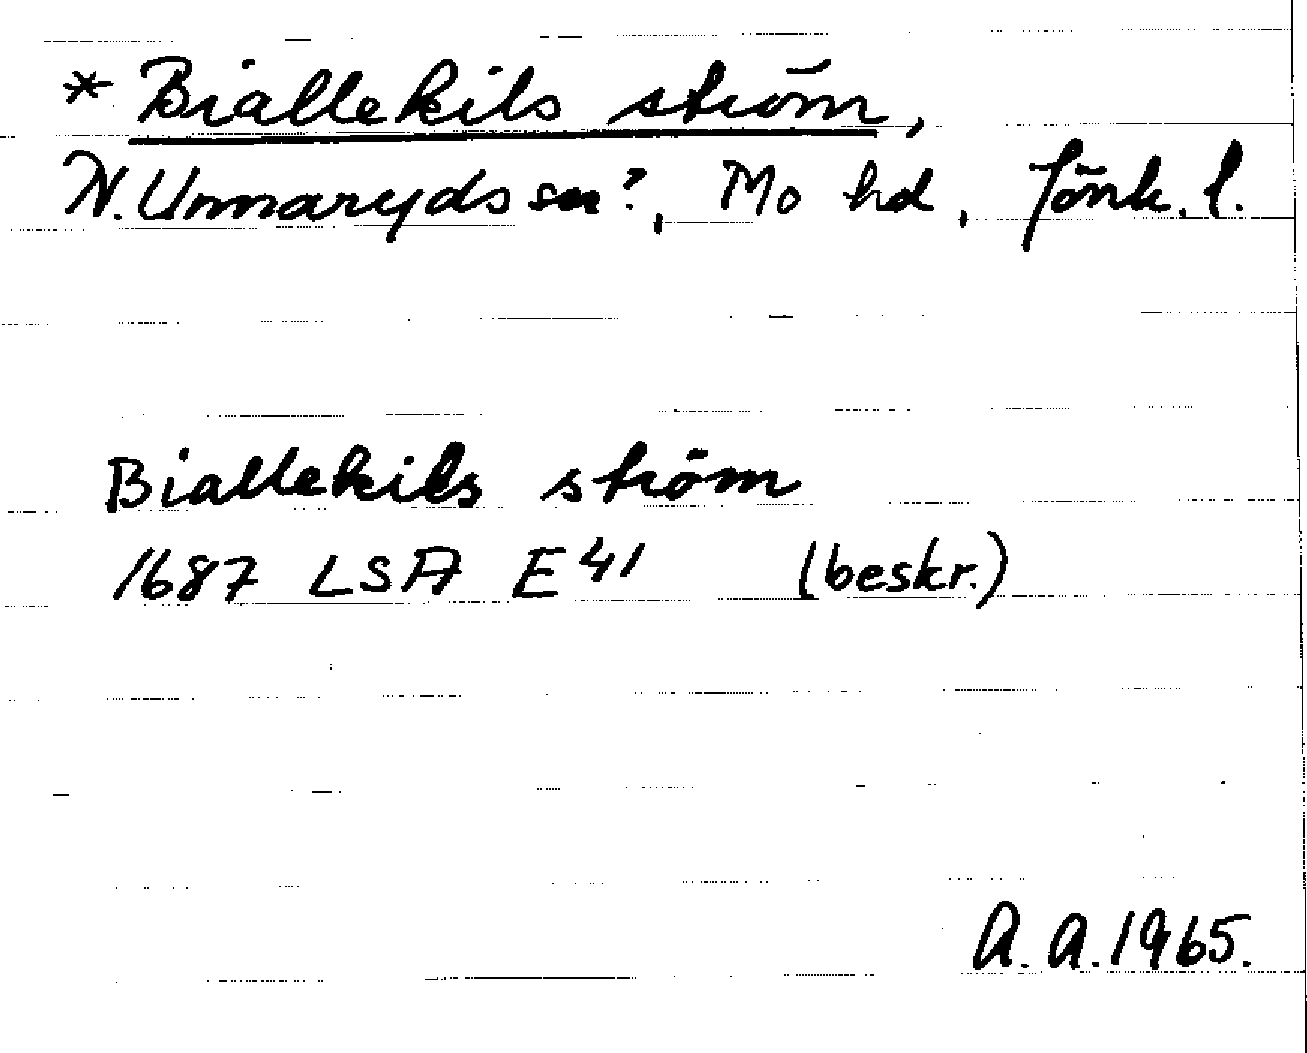 * Biallekils ström,
N. Unnaryds sn?, Mo hd, Jönk. l.
Biallekils ström
1687 LSA E 41 (beskr.)
A. A. 1965.